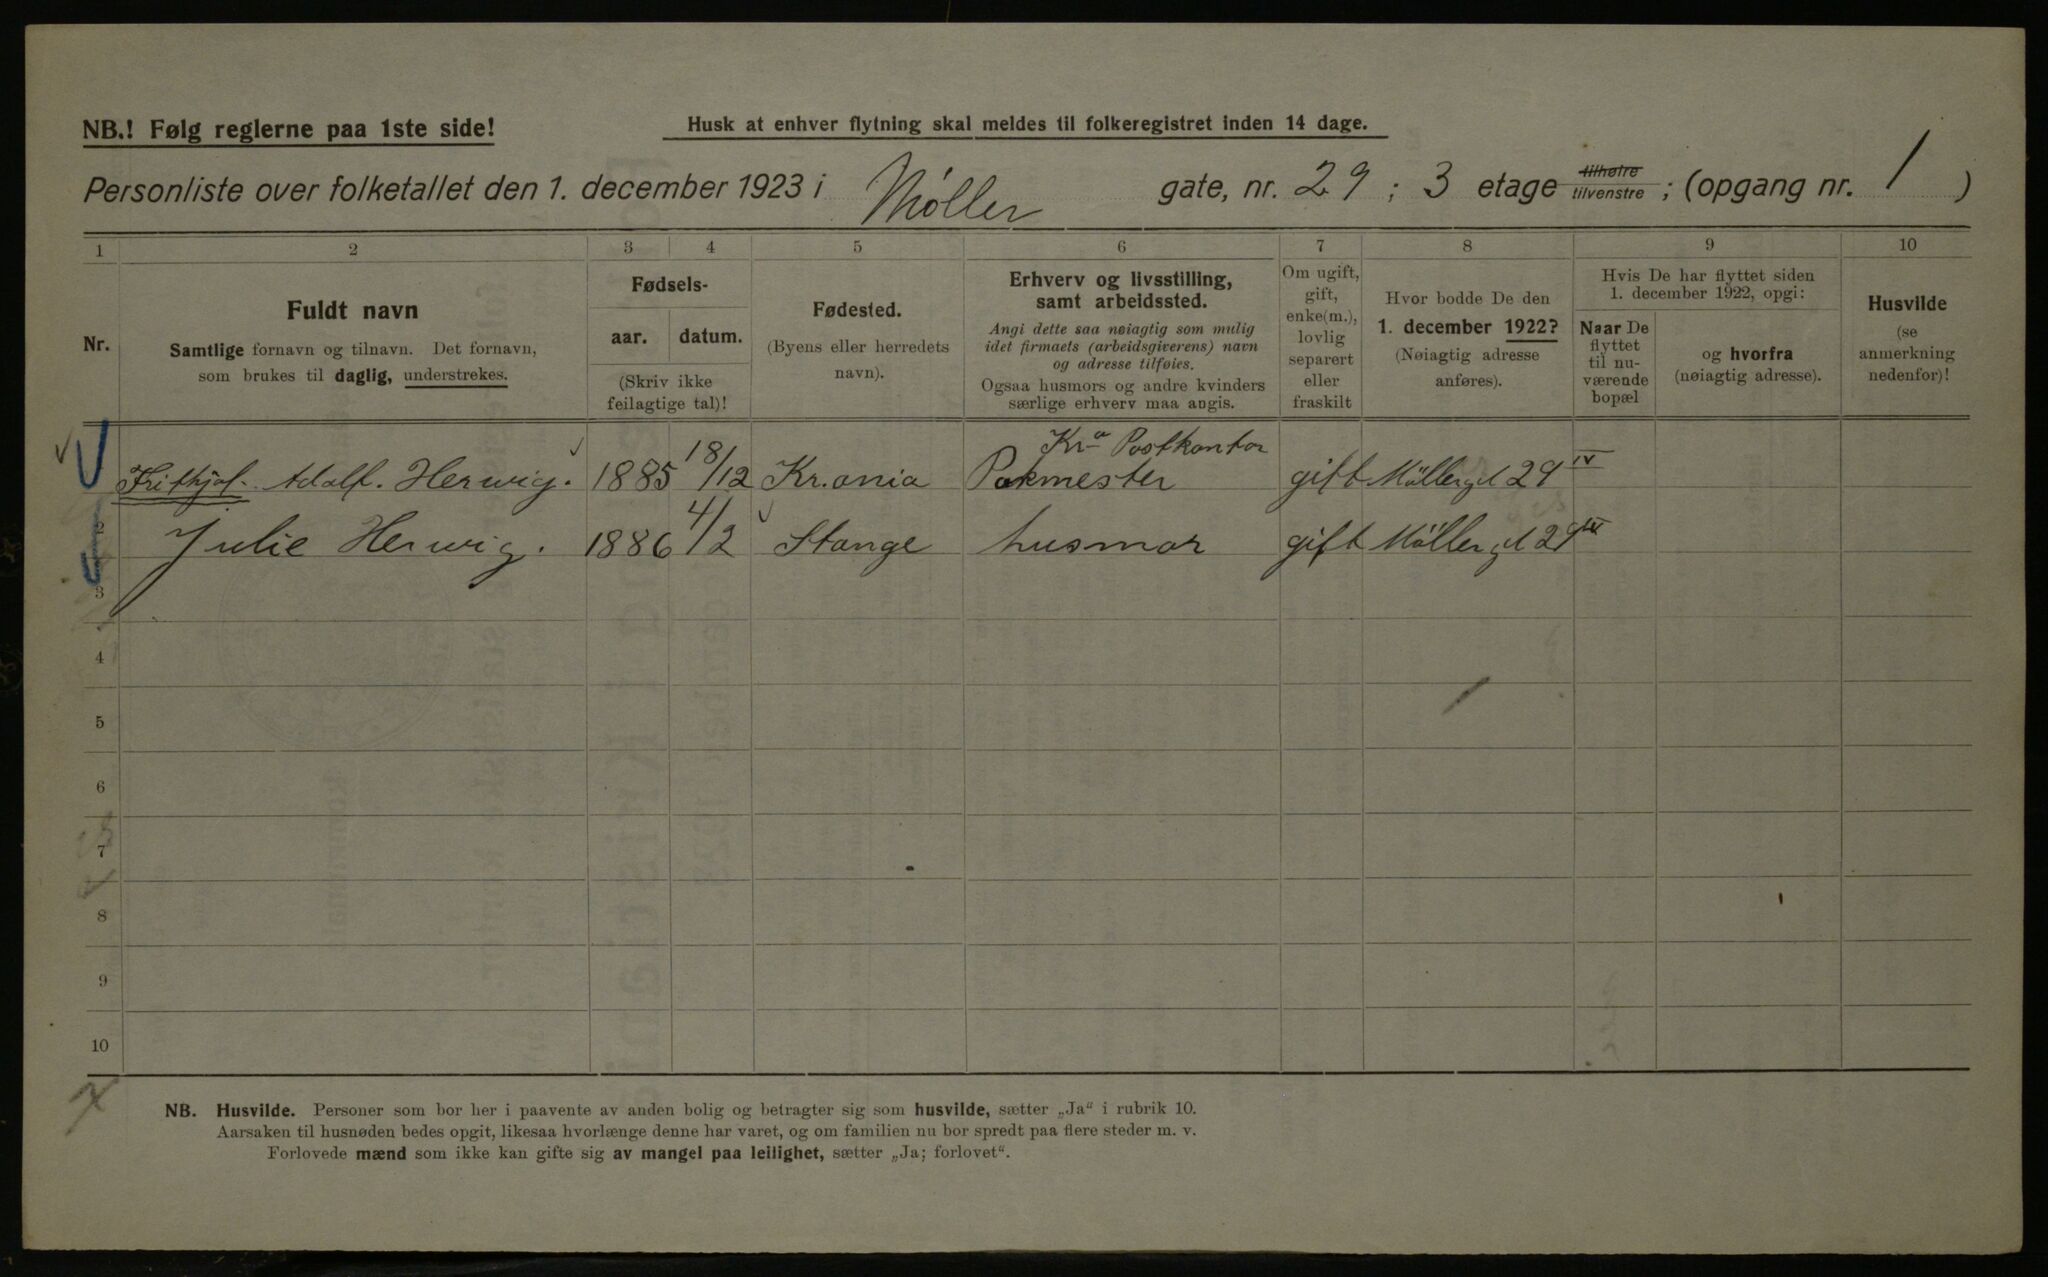 NB.! Følg reglerne paa 1ste side!
Husk at enhver flytning skal meldes til folkeregistret inden 14 dage.
Personliste over folketallet den 1. december 1923 i Møller gate, nr. 29 ; 3 etage tilhøire tilvenstre ; (opgang nr. 1 )
1 2 3 4 5 6 7 8 9 10
Nr.
Fuldt navn
Samtlige fornavn og tilnavn. Det fornavn,
som brukes til daglig, understrekes.
Fødsels-
aar. datum.
(Skriv ikke
feilagtige tal)!
Fødested.
(Byens eller herredets
navn).
Erhverv og livsstilling,
samt arbeidssted.
Angi dette saa nøiagtig som mulig
idet firmaets (arbeidsgiverens) navn
og adresse tilføies.
Ogsaa husmors og andre kvinders
særlige erhverv maa angis.
Om ugift,
gift,
enke(m.),
lovlig
separert
eller
fraskilt
Hvor bodde De den
1. december 1922?
(Nøiagtig adresse
anføres).
Hvis De har flyttet siden
1. december 1922, opgi:
Naar De
flyttet
til nu-
værende
bopæl
og hvorfra
(nøiagtig adresse).
Husvilde
(se
anmerkning
nedenfor)!
Kra Postkontor
Frithjof. Adolf. Herwig. 1885 18/12 Kr.ania Pakmester gift Møllergt 29 IV
2 Julie Herwig. 1886 4/2 Stange husmor gift Møllergt 29 IV
3
4
5
6
7
8
9
10
NB. Husvilde. Personer som bor her i paavente av anden bolig og betragter sig som husvilde, sætter „Ja" i rubrik 10.
Aarsaken til husnøden bedes opgit, likesaa hvorlænge denne har varet, og om familien nu bor spredt paa flere steder m. v.
Forlovede mænd som ikke kan gifte sig av mangel paa leilighet, sætter „Ja; forlovet".